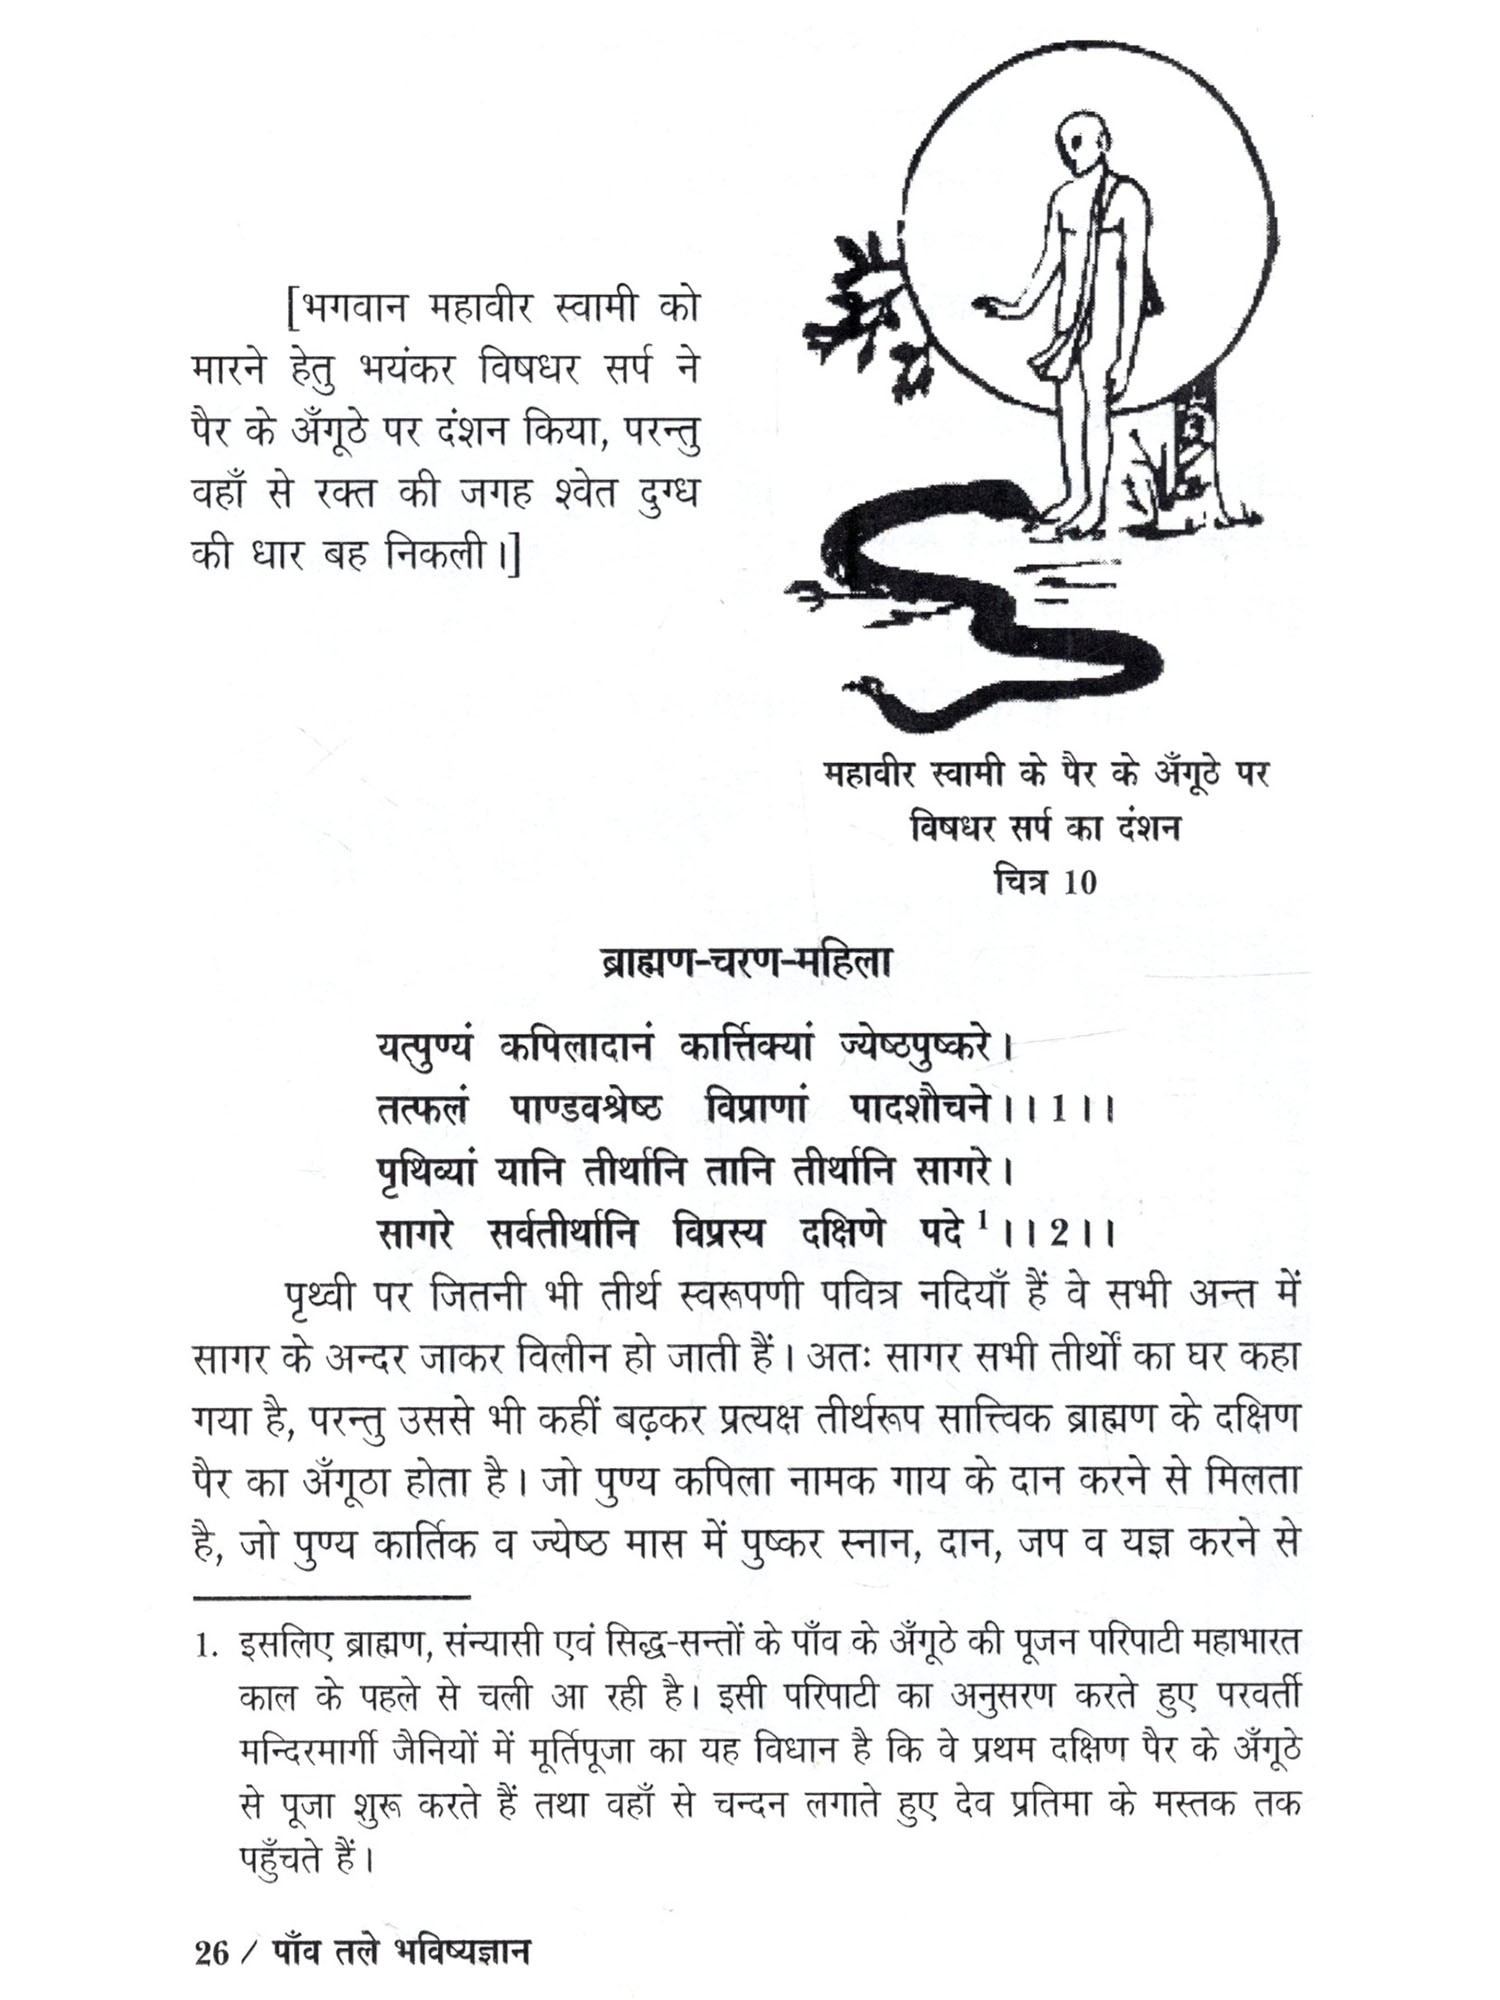 [भगवान महावीर स्वामी को
मारने हेतु भयंकर विषधर सर्प ने
पैर के अँगूठे पर दंशन किया, परन्तु
वहाँ से रक्त की जगह श्वेत दुग्ध
की धार बह निकली।]
महावीर स्वामी के पैर के अँगूठे पर
विषधर सर्प का दंशन
चित्र 10
ब्राह्मण-चरण-महिला
यत्पुण्यं कपिलादानं कार्त्तिक्यां ज्येष्ठपुष्करे।
तत्फलं पाण्डवश्रेष्ठ विप्राणां पादशौचने।। 1।।
पृथिव्यां यानि तीर्थानि तानि तीर्थानि सागरे।
सागरे सर्वतीर्थानि विप्रस्य दक्षिणे पदे ¹।। 2।।
पृथ्वी पर जितनी भी तीर्थ स्वरूपणी पवित्र नदियाँ हैं वे सभी अन्त में
सागर के अन्दर जाकर विलीन हो जाती हैं। अतः सागर सभी तीर्थों का घर कहा
गया है, परन्तु उससे भी कहीं बढ़कर प्रत्यक्ष तीर्थरूप सात्त्विक ब्राह्मण के दक्षिण
पैर का अँगूठा होता है। जो पुण्य कपिला नामक गाय के दान करने से मिलता
है, जो पुण्य कार्तिक व ज्येष्ठ मास में पुष्कर स्नान, दान, जप व यज्ञ करने से
1. इसलिए ब्राह्मण, संन्यासी एवं सिद्ध-सन्तों के पाँव के अँगूठे की पूजन परिपाटी महाभारत
काल के पहले से चली आ रही है। इसी परिपाटी का अनुसरण करते हुए परवर्ती
मन्दिरमार्गी जैनियों में मूर्तिपूजा का यह विधान है कि वे प्रथम दक्षिण पैर के अँगूठे
से पूजा शुरू करते हैं तथा वहाँ से चन्दन लगाते हुए देव प्रतिमा के मस्तक तक
पहुँचते हैं।
26 / पाँव तले भविष्यज्ञान